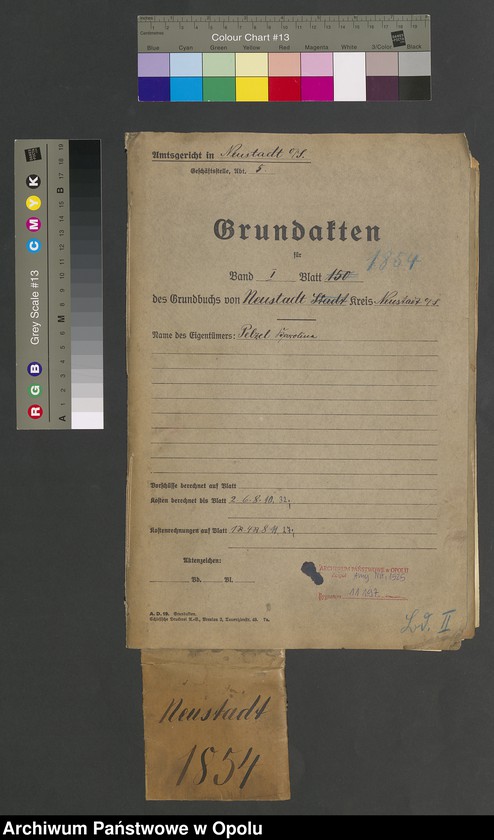 Colour Chart #13
Blue Cyan Green Yellow Red Magenta White 3/Color Black
Grey Scale #13
R G B C M Y K
A M B
Amtsgericht in Neustadt O/S.
Geschäftsstelle, Abt. 5
Grundakten
für
1854
Band I Blatt 150
des Grundbuchs von Neustadt Stadt Kreis Neustadt O/S.
Name des Eigentümers: Pelzel Karolina
Vorschüsse berechnet auf Blatt
Kosten berechnet bis Blatt 2. 6. 8. 10. 32,
Kostenrechnungen auf Blatt
Aktenzeichen:
Bd. Bl.
ARCHIWUM PAŃSTWOWE w OPOLU
11 187
Ld. II
Neustadt
1854
Archiwum Państwowe w Opolu